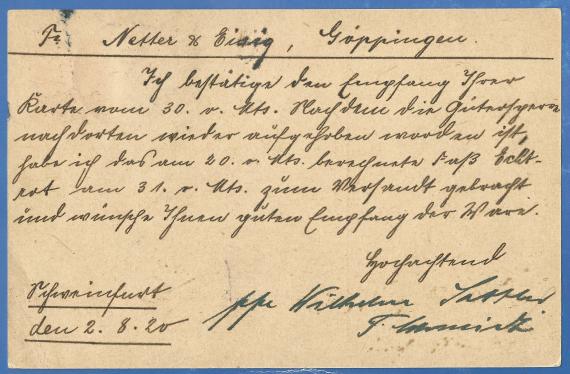 Fa Netter & Eisig, Göppingen.
Ich bestätige den Empfang Ihrer
Karte vom 30. v. Mts. Nachdem die Gütersperre
nach dorten wieder aufgehoben worden ist,
habe ich das am 20. v. Mts. berechnete Faß Echt-
rot am 31. v. Mts. zum Versandt gebracht
und wünsche Ihnen guten Empfang der Ware.
Hochachtend
Schweinfurt
den 2. 8. 20
ppa Wilhelm Sattler